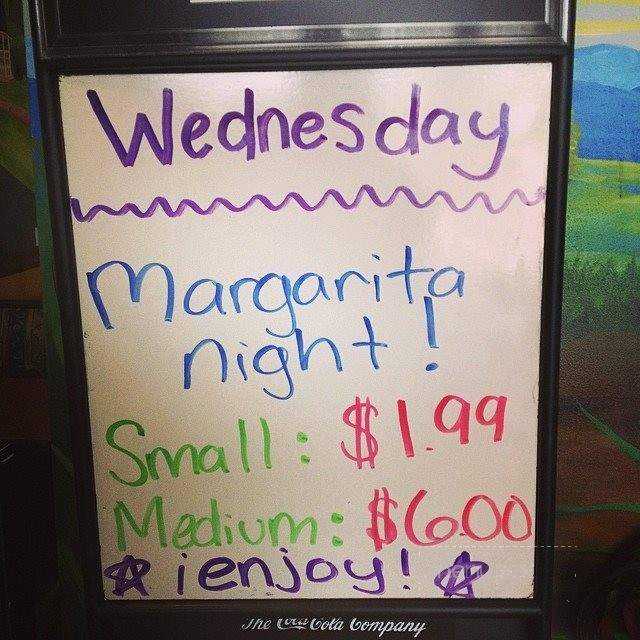 Wednesday
Margarita
night!
Small: $1.99
Medium: $6.00
¡enjoy!
The Coca Cola Company